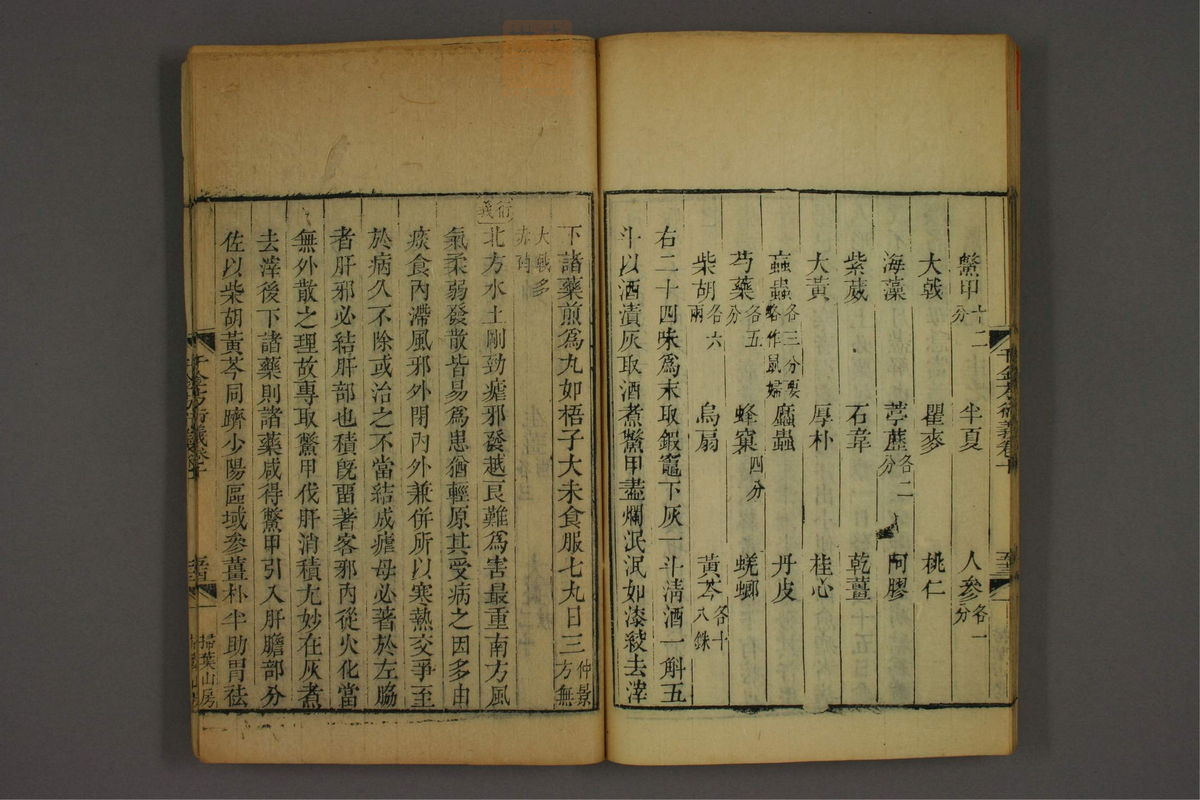 鱉甲十二分 半夏 人參各一分
大戟 瞿麥 桃仁
海藻 葶藶各二分 阿膠
紫葳 石韋 乾薑
大黃 厚朴 桂心
䗪蟲各三分要略作鼠婦 䗪蟲 丹皮
芍藥各五分 蜂窠四分 蜣螂
柴胡各六兩 烏扇 黃芩各十八銖
右二十四味為末取鍜竈下灰一斗清酒一斛五
斗以酒漬灰取酒煮鱉甲盡爛泯泯如漆絞去滓
下諸藥煎為丸如梧子大未食服七丸日三仲景方無
大戟多
衍義
北方水土剛勁瘧邪發越艮難為害最重南方風
氣柔弱發散皆易為患猶輕原其受病之因多由
痰食內滯風邪外閉內外兼併所以寒熱交爭至
於病久不除或治之不當結成瘧母必著於左脇
者肝邪必結肝部也積旣畱著客邪內從火化當
無外散之理故專取鱉甲伐肝消積尢妙在灰煮
去滓後下諸藥則諸藥咸得鱉甲引入肝膽部分
佐以柴胡黃芩同躋少陽區域參薑朴半助胃祛
千金方衍義卷十
掃葉山房